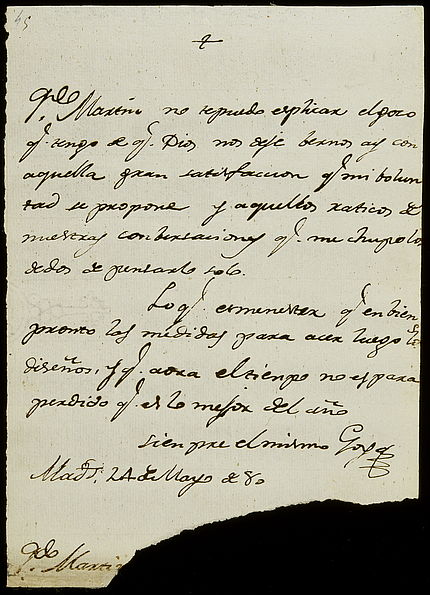 45
Qdo Martin no te puedo esplicar el gozo
q.e tengo de q.e Dios nos deje bernos ay con
aquella gran satisfaccion q.e mi bolun
tad se propone y aquellos raticos de
nuestras conbersaciones q.e me chupo los
dedos de pensarlo solo.
Lo q.e es menester q.e enbien
pronto las medidas para acer luego los
diseños, y q.e aora el tienpo no es para
perdido q.e es lo mejor del año
sienpre el mismo Goya
Mad.d 24 de Mayo de 80
Qdo Martin